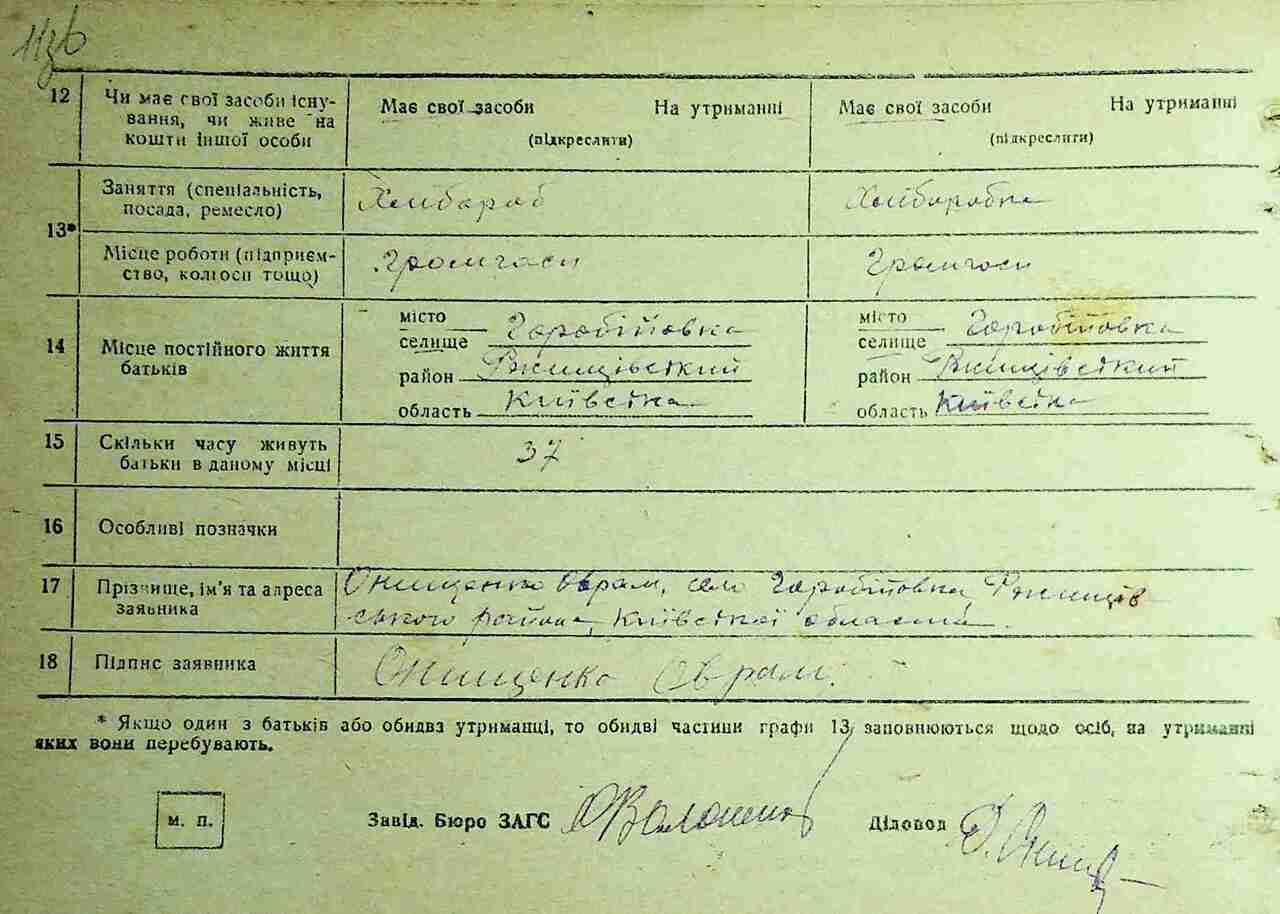 12 Чи має свої засоби існу-
вання, чи живе на
кошти іншої особи
Має свої засоби На утриманні
(підкреслити)
Має свої засоби На утриманні
(підкреслити)
13*
Заняття (спеціальність,
посада, ремесло)
Хлібороб
Хліборобка
Місце роботи (підприєм-
ство, колгосп тощо)
Громгосп
Громгосп
14 Місце постійного життя
батьків
місто
селище Горобіївка
район Ржищівський
область Київська
місто
селище Горобіївка
район Ржищівський
область Київська
15 Скільки часу живуть
батьки в даному місці
37
16 Особливі позначки
17 Прізвище, ім'я та адреса
заявника
Онищенко Оврам, село Горобіївка, Ржищів
ського района, Київської области.
18 Підпис заявника
Онищенко Оврам.
* Якщо один з батьків або обидва утриманці, то обидві частини графи 13 заповнюються щодо осіб, на утриманні
яких вони перебувають.
м. п.
Завід. Бюро ЗАГС
Діловод